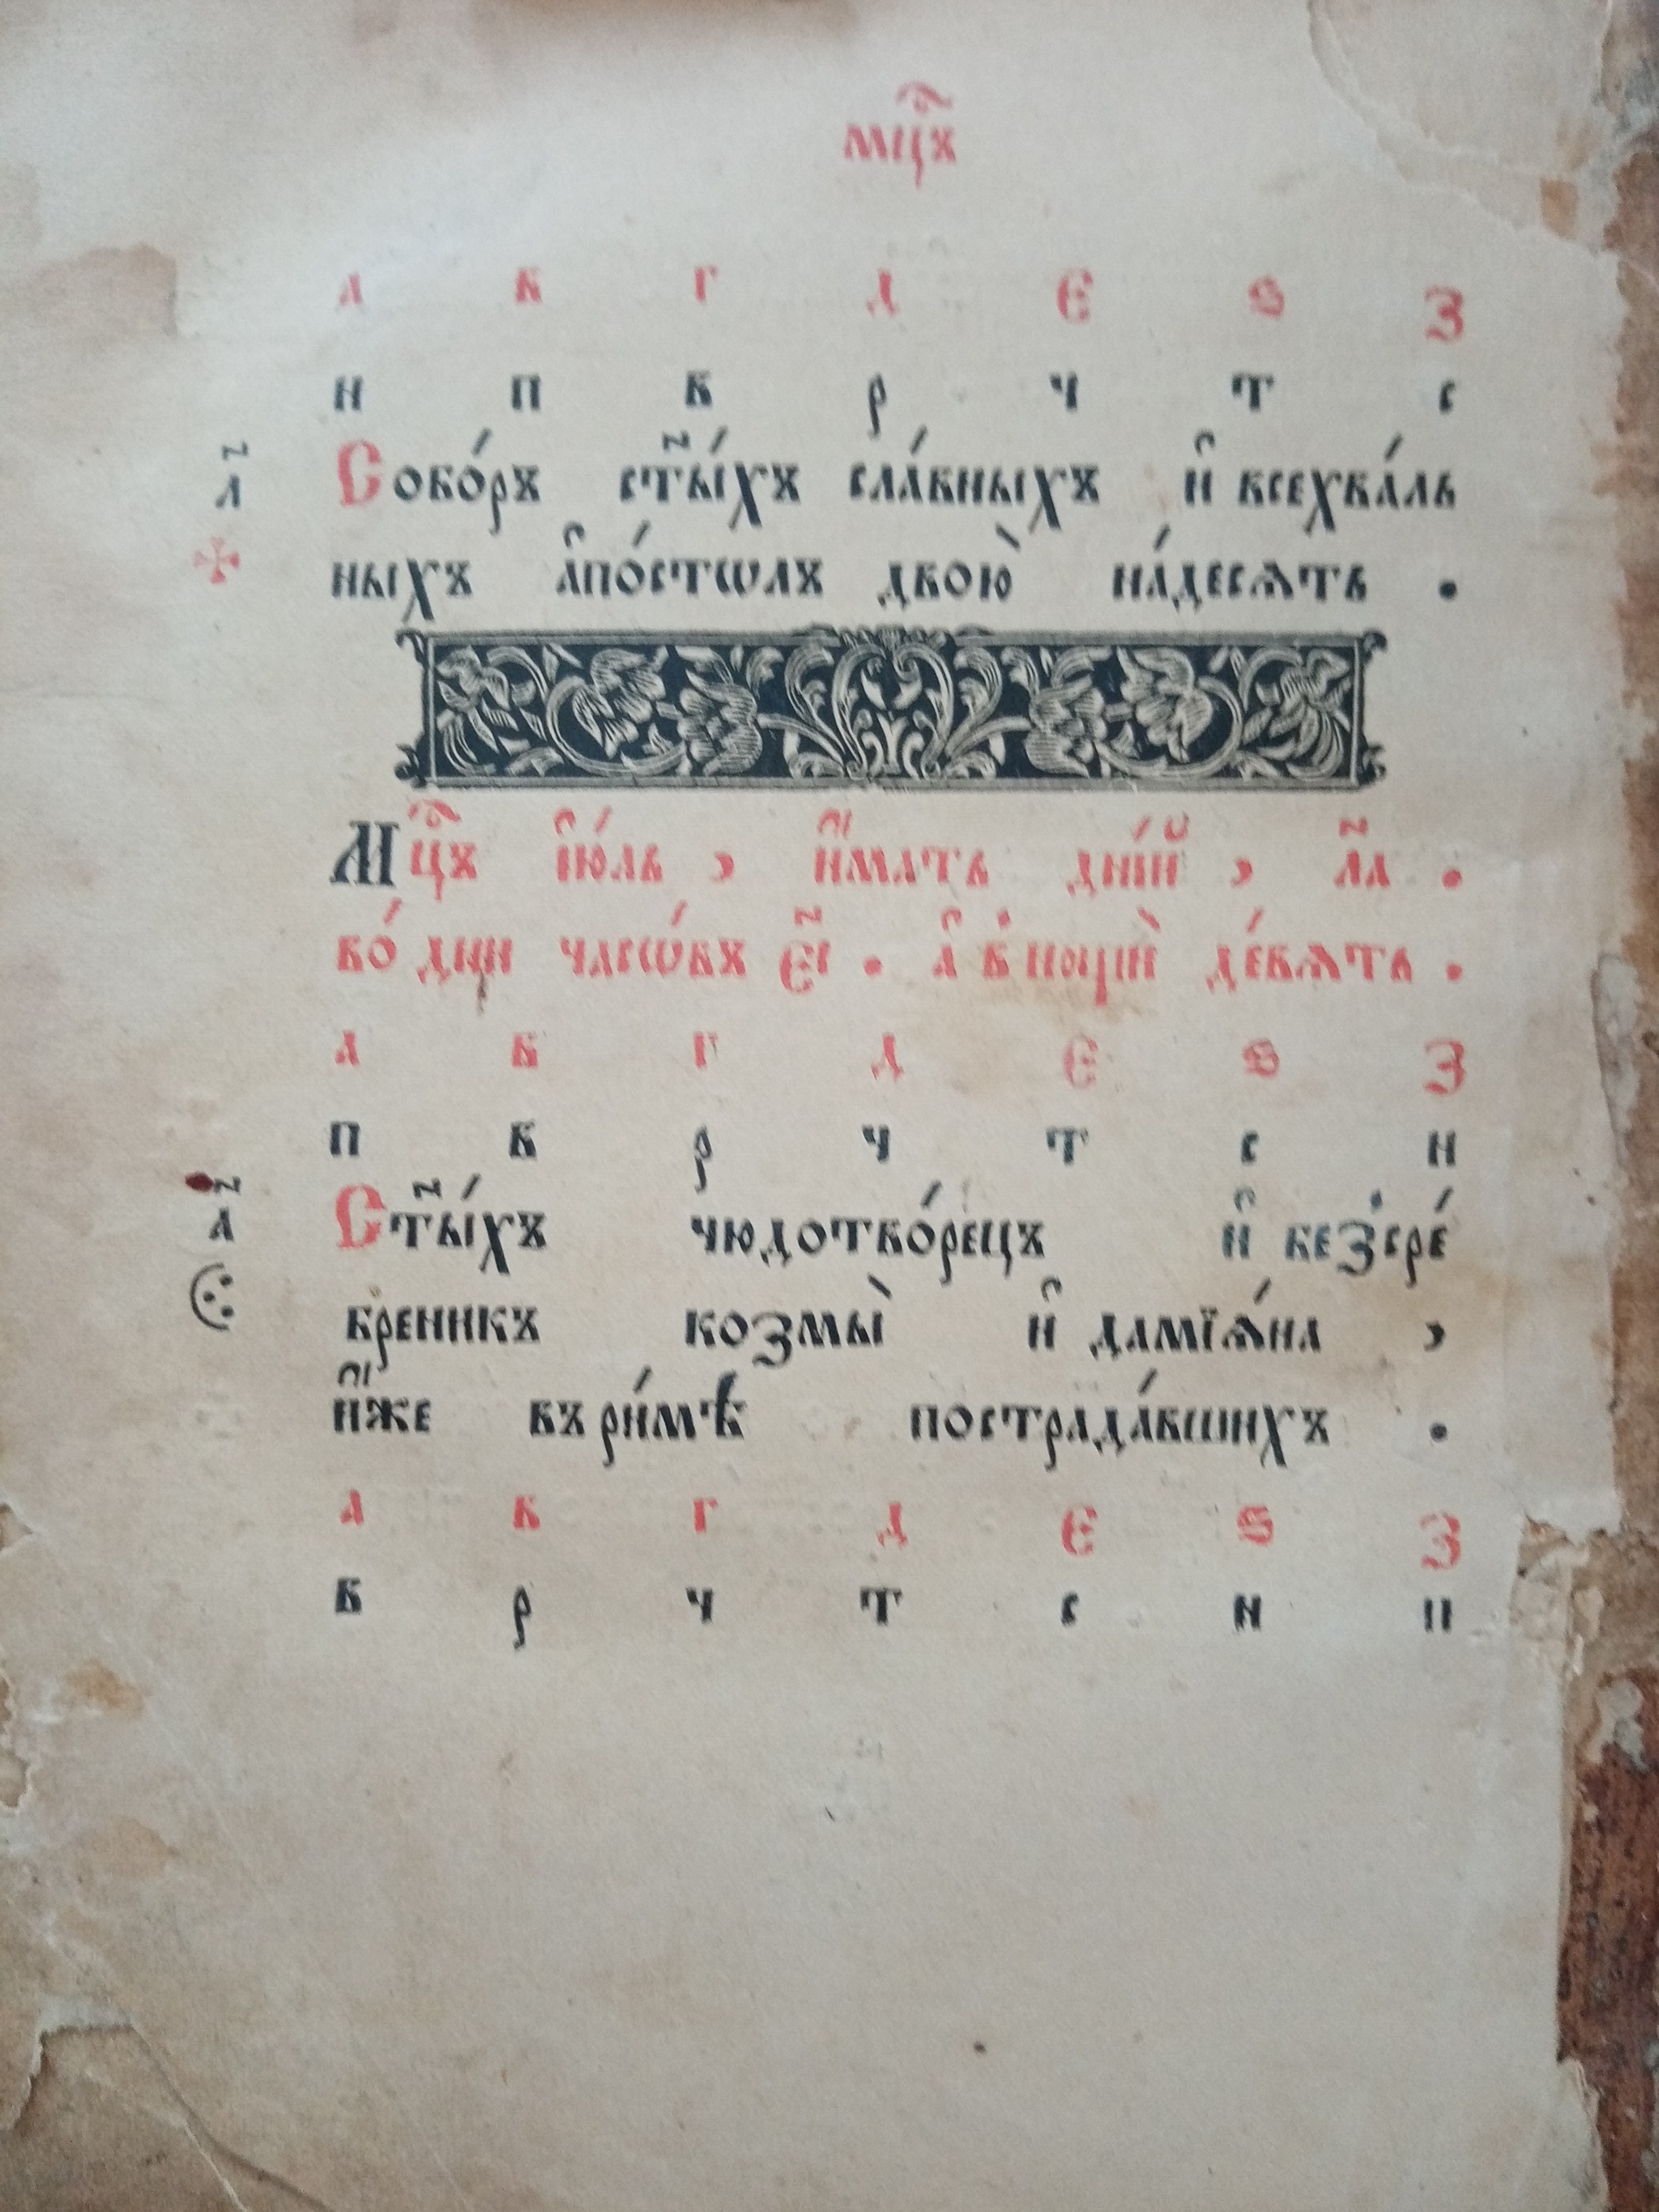 мⷭ҇цъ
а в г д є ѕ з
н п в р ч т с
л҃ Собо́ръ ст҃ы́хъ сла́вныхъ и҆ всехва́ль
ныхъ а҆по́стѡлъ двою̀ на́десѧть .
Мⷭ҇цъ і҆ю́ль , и҆́мать дні́й , л҃а .
во́ дни часѡ́въ є҃і . а҆ в нощѝ де́вѧть .
а в г д є ѕ з
п в р ч т с н
а҃ Ст҃ы́хъ чюдотво́рецъ и҆ безсре́
бреникъ козмы̀ и҆ дамїѧ́на ,
и҆́же въ ри́мѣ пострада́вшихъ .
а в г д є ѕ з
в р ч т с н п